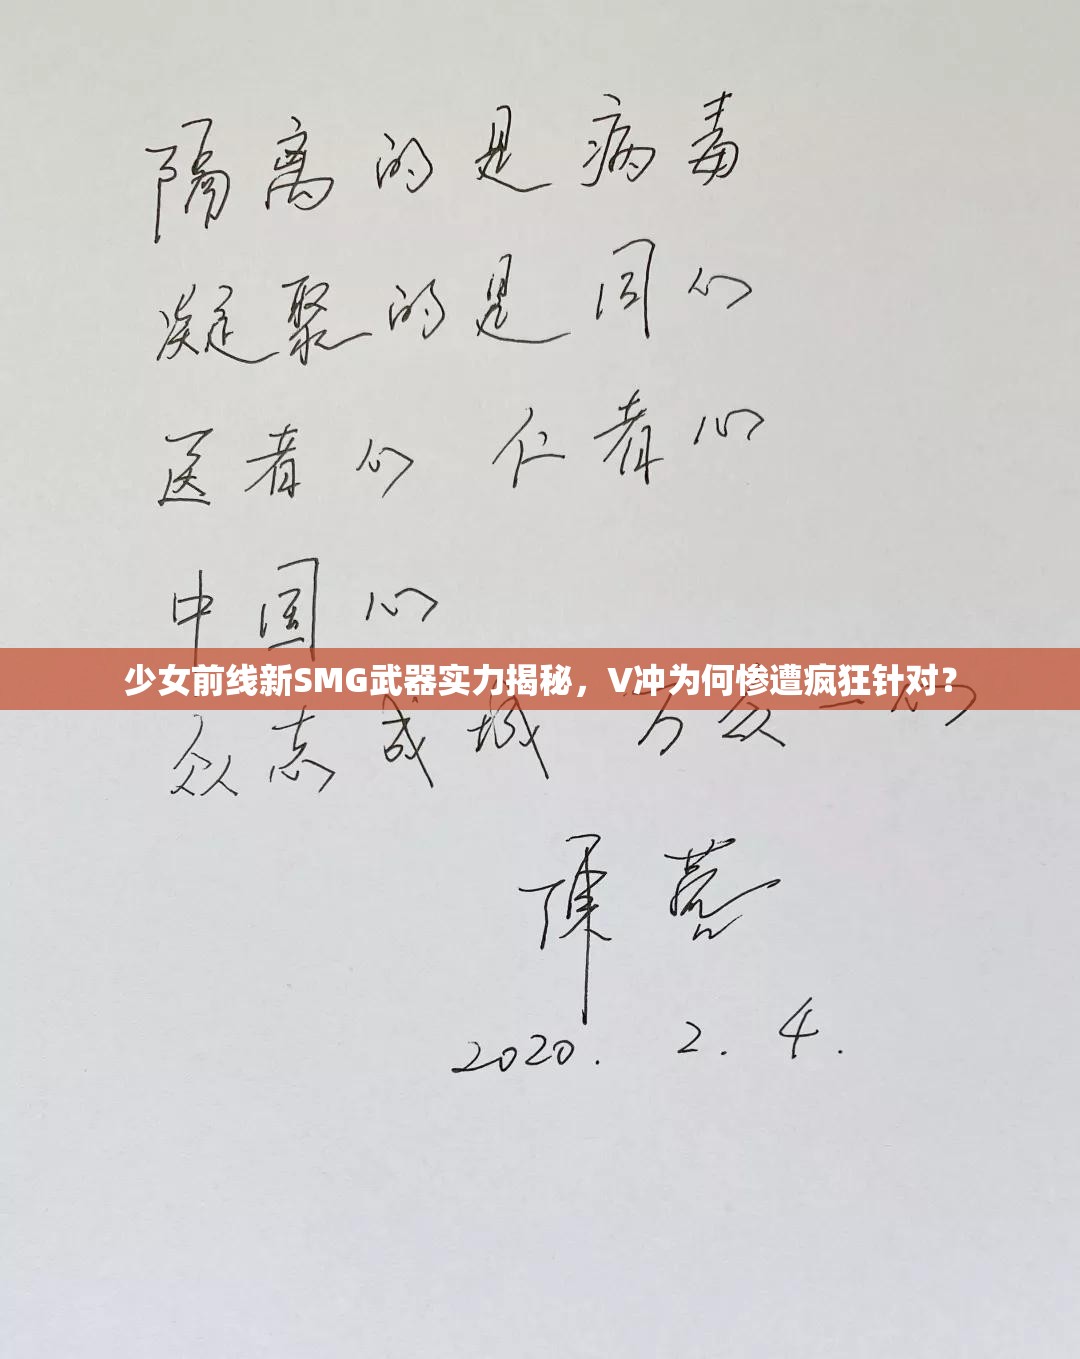 隔离的是病毒
凝聚的是同心
医者心 仁者心
中国心
少女前线新SMG武器实力揭秘，V冲为何惨遭疯狂针对？
众志成城 万众一心
2020. 2. 4.